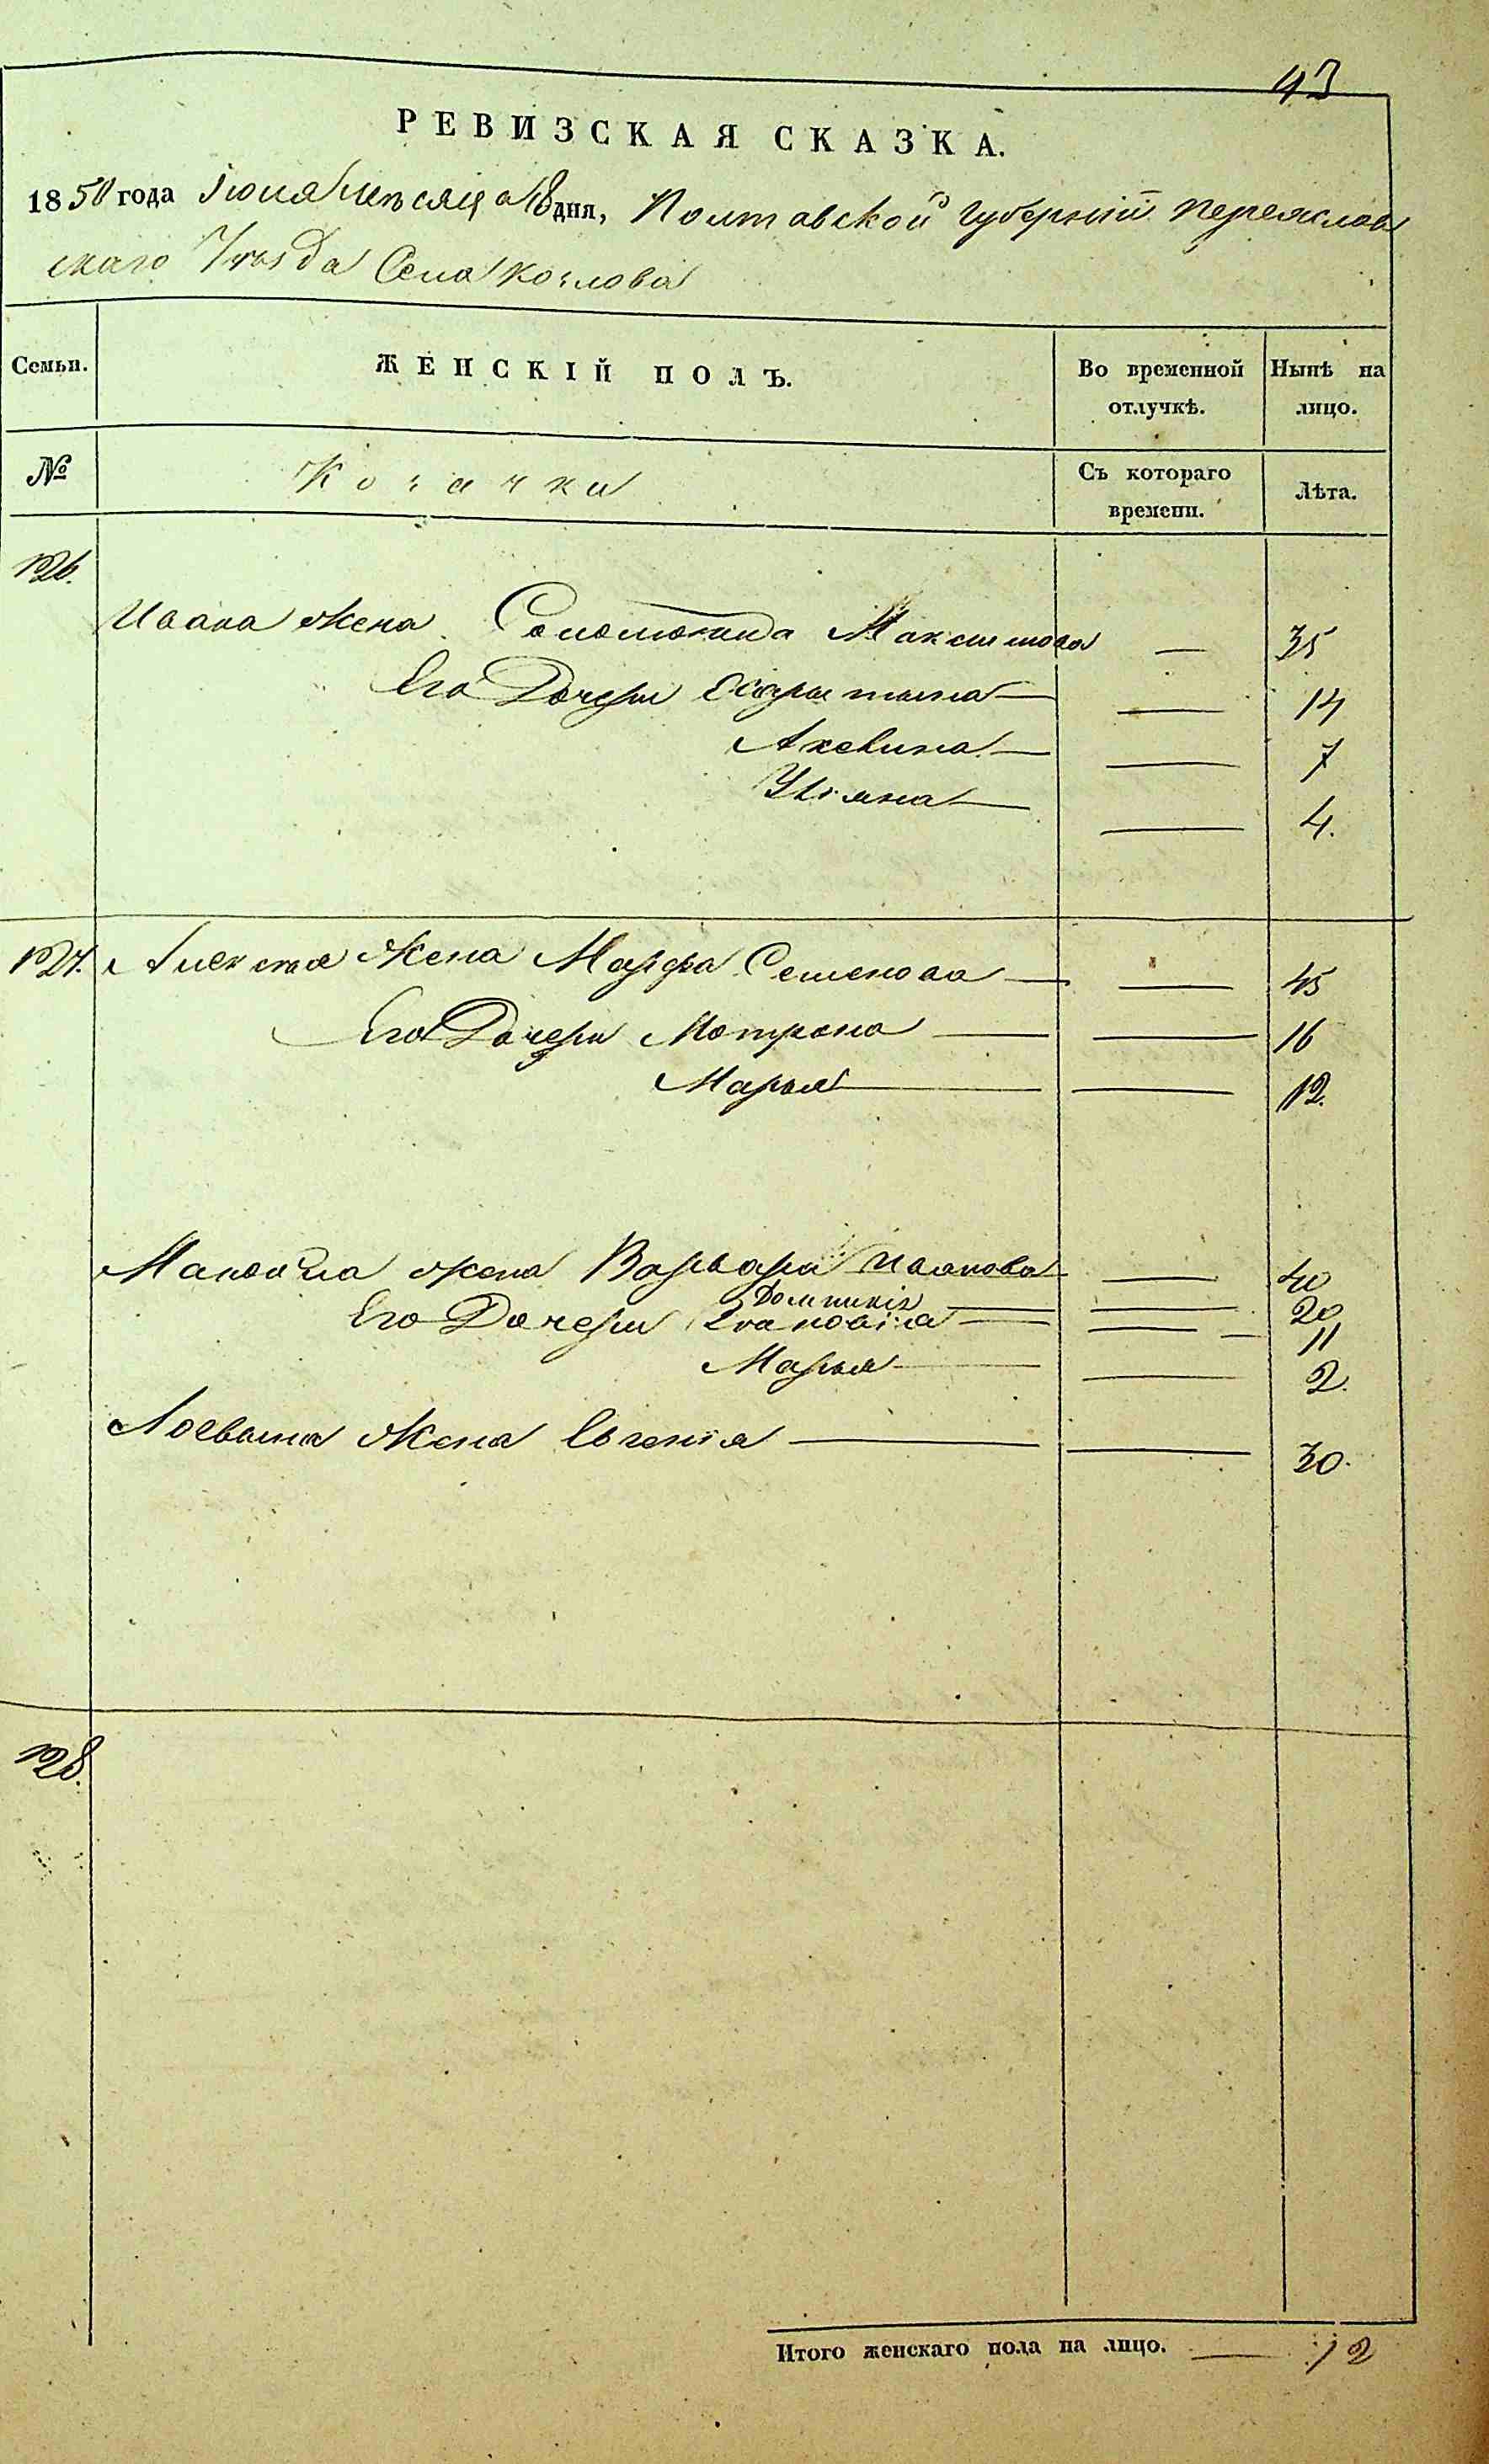 43
РЕВИЗСКАЯ СКАЗКА.
1850 года Іюня Мѣсяца 18 дня, Полтавской Губерніи Переяслав
скаго Уѣзда Села Козлова
Семьи. ЖЕНСКІЙ ПОЛЪ. Во временной отлучкѣ. Нынѣ на лицо.
№ Козачки Съ котораго времени. Лѣта.
126.
Ивана жена Соломонида Максимова — 35
Его Дочери — 14
— 7
Уліяна — — 4.
127. Алексѣя Жена Марфа Семенова — — 45
Его Дочери Мотрона — — 16
Марья — — 12.
Мануила жена Варвара Иванова — 40
Домникія — — 20
Его Дочери — — 11
Марья — — 2.
жена Евгенія — — 30.
128.
Итого женскаго пола на лицо. — 12